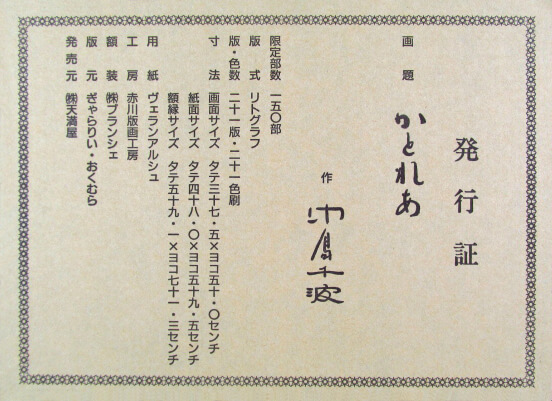 発行証
画題 かとれあ
作 中島千波
限定部数 一五〇部
版式 リトグラフ
版・色数 二十一版・二十一色刷
寸法 画面サイズ タテ三十七・五×ヨコ五十・〇センチ
紙面サイズ タテ四十八・〇×ヨコ五十九・五センチ
額縁サイズ タテ五十九・一×ヨコ七十一・三センチ
用紙 ヴェランアルシュ
工房 赤川版画工房
額装 ㈱ブランシェ
版元 ぎゃらりい・おくむら
発売元 ㈱天満屋